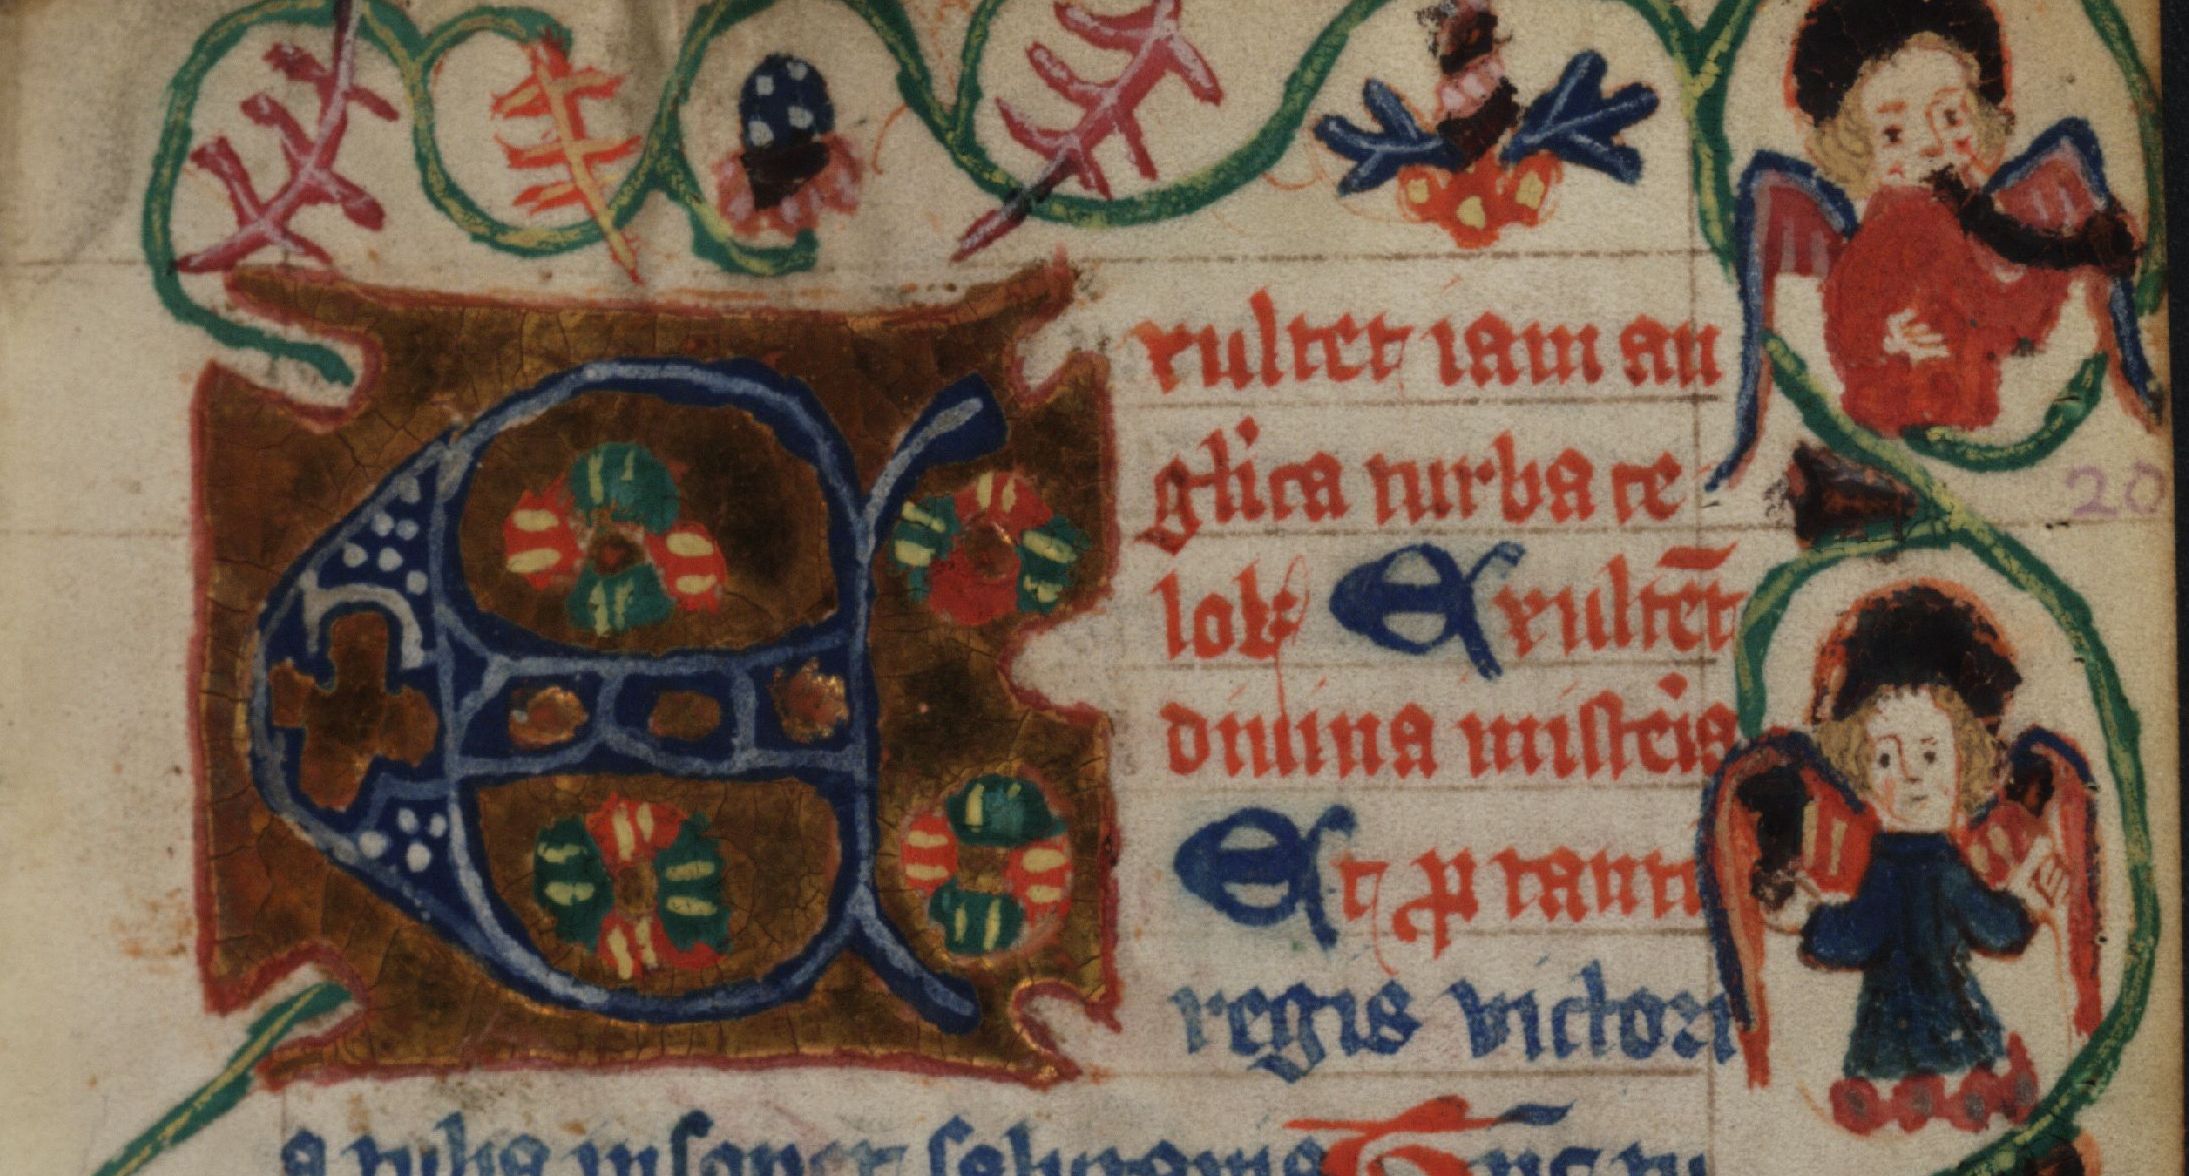 Exultet iam an
glica turba ce
loꝝ Exultēt
diuina misteria
Et ꝓ tanti
regis victori
a tuba insonet salutaris
20